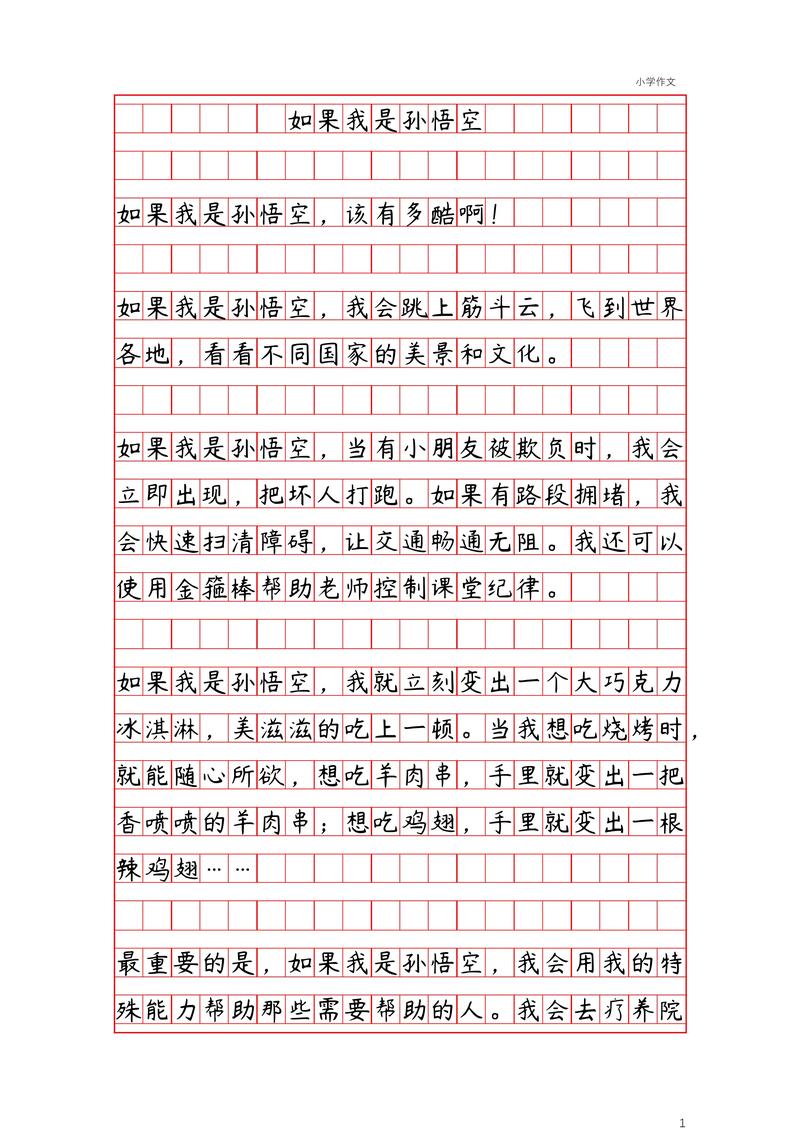 小学作文
如果我是孙悟空
如果我是孙悟空，该有多酷啊！
如果我是孙悟空，我会跳上筋斗云，飞到世界
各地，看看不同国家的美景和文化。
如果我是孙悟空，当有小朋友被欺负时，我会
立即出现，把坏人打跑。如果有路段拥堵，我
会快速扫清障碍，让交通畅通无阻。我还可以
使用金箍棒帮助老师控制课堂纪律。
如果我是孙悟空，我就立刻变出一个大巧克力
冰淇淋，美滋滋的吃上一顿。当我想吃烧烤时，
就能随心所欲，想吃羊肉串，手里就变出一把
香喷喷的羊肉串；想吃鸡翅，手里就变出一根
辣鸡翅……
最重要的是，如果我是孙悟空，我会用我的特
殊能力帮助那些需要帮助的人。我会去疗养院
1